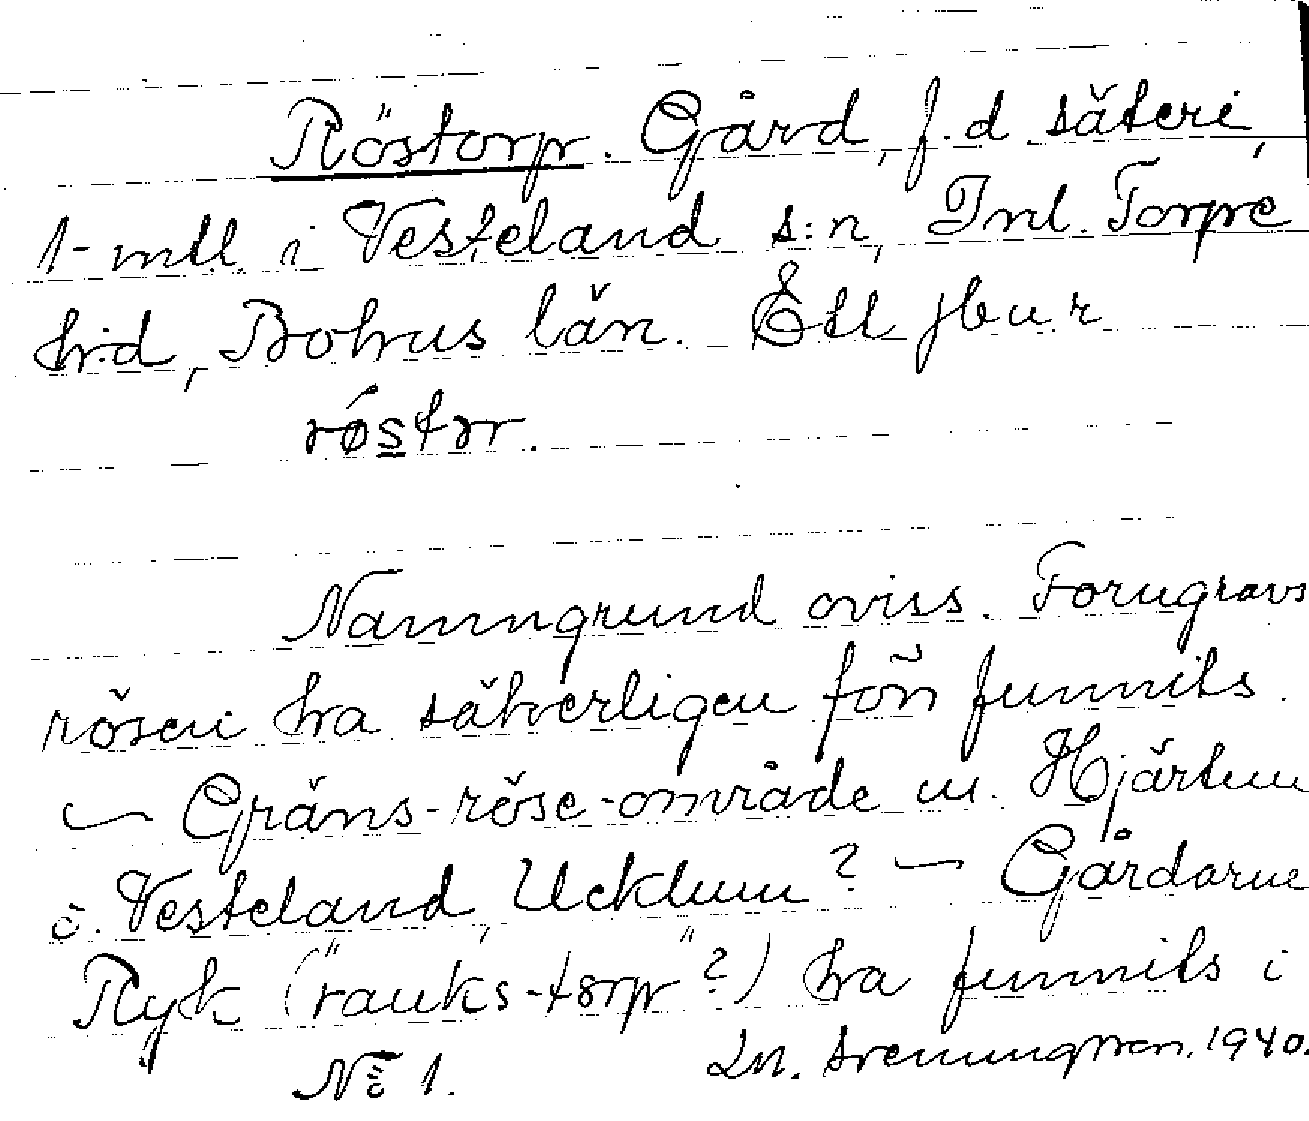 Röstorp. Gård, f.d säteri,
1 mtl. i Vesteland s:n, Inl. Torpe
h:d, Bohus län. Ett jbu r
röstor.
Namngrund oviss. Forngravs
rösen ha säkerligen förr funnits.
— Gräns-röse-område m. Hjärtum
o. Vesteland, Ucklum? — Gårdarne
Ryk ("rauks-torp"?) ha funnits i
No 1. Lm. Svenungsson. 1940.